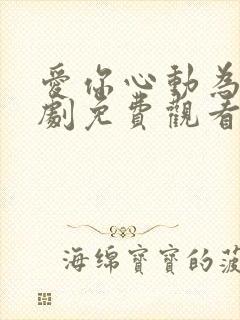 愛你心動為
劇免費觀看
海绵寶寶的菠